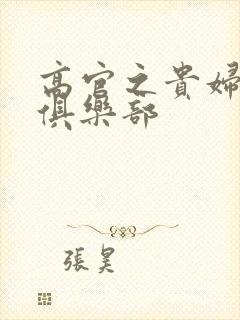 高官之貴婦
俱樂部
張昊